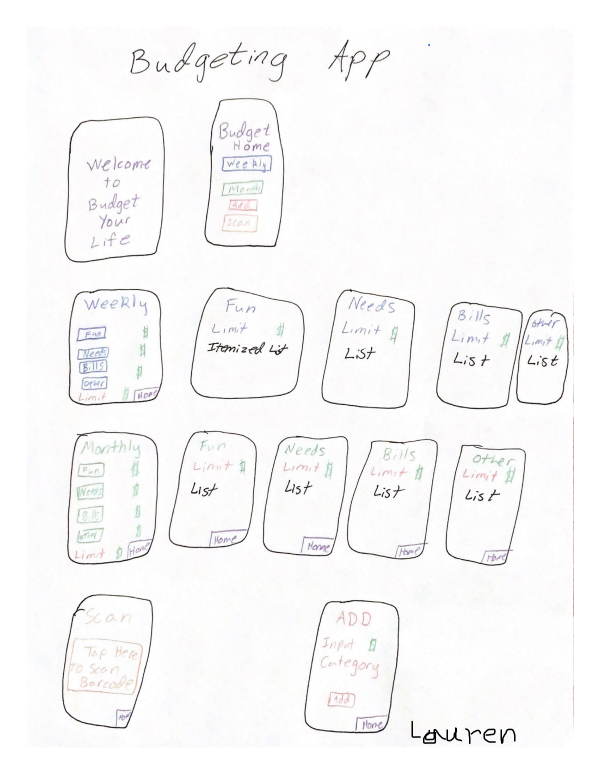 Budgeting App
Welcome
to
Budget
Your
Life
Budget
Home
Weekly
Month
Add
Scan
Weekly
Fun $
Needs $
Bills $
Other
Limit $ Home
Fun
Limit $
Itemized List
Needs
Limit $
List
Bills
Limit $
List
Other
Limit $
List
Monthly
Fun $
Needs $
Bills $
other $
Limit $ Home
Fun
Limit $
List
Home
Needs
Limit $
List
Home
Bills
Limit $
List
Home
Other
Limit $
List
Home
Scan
Tap Here
To Scan
Barcode
Home
ADD
Input $
Category
Add
Home
Lauren